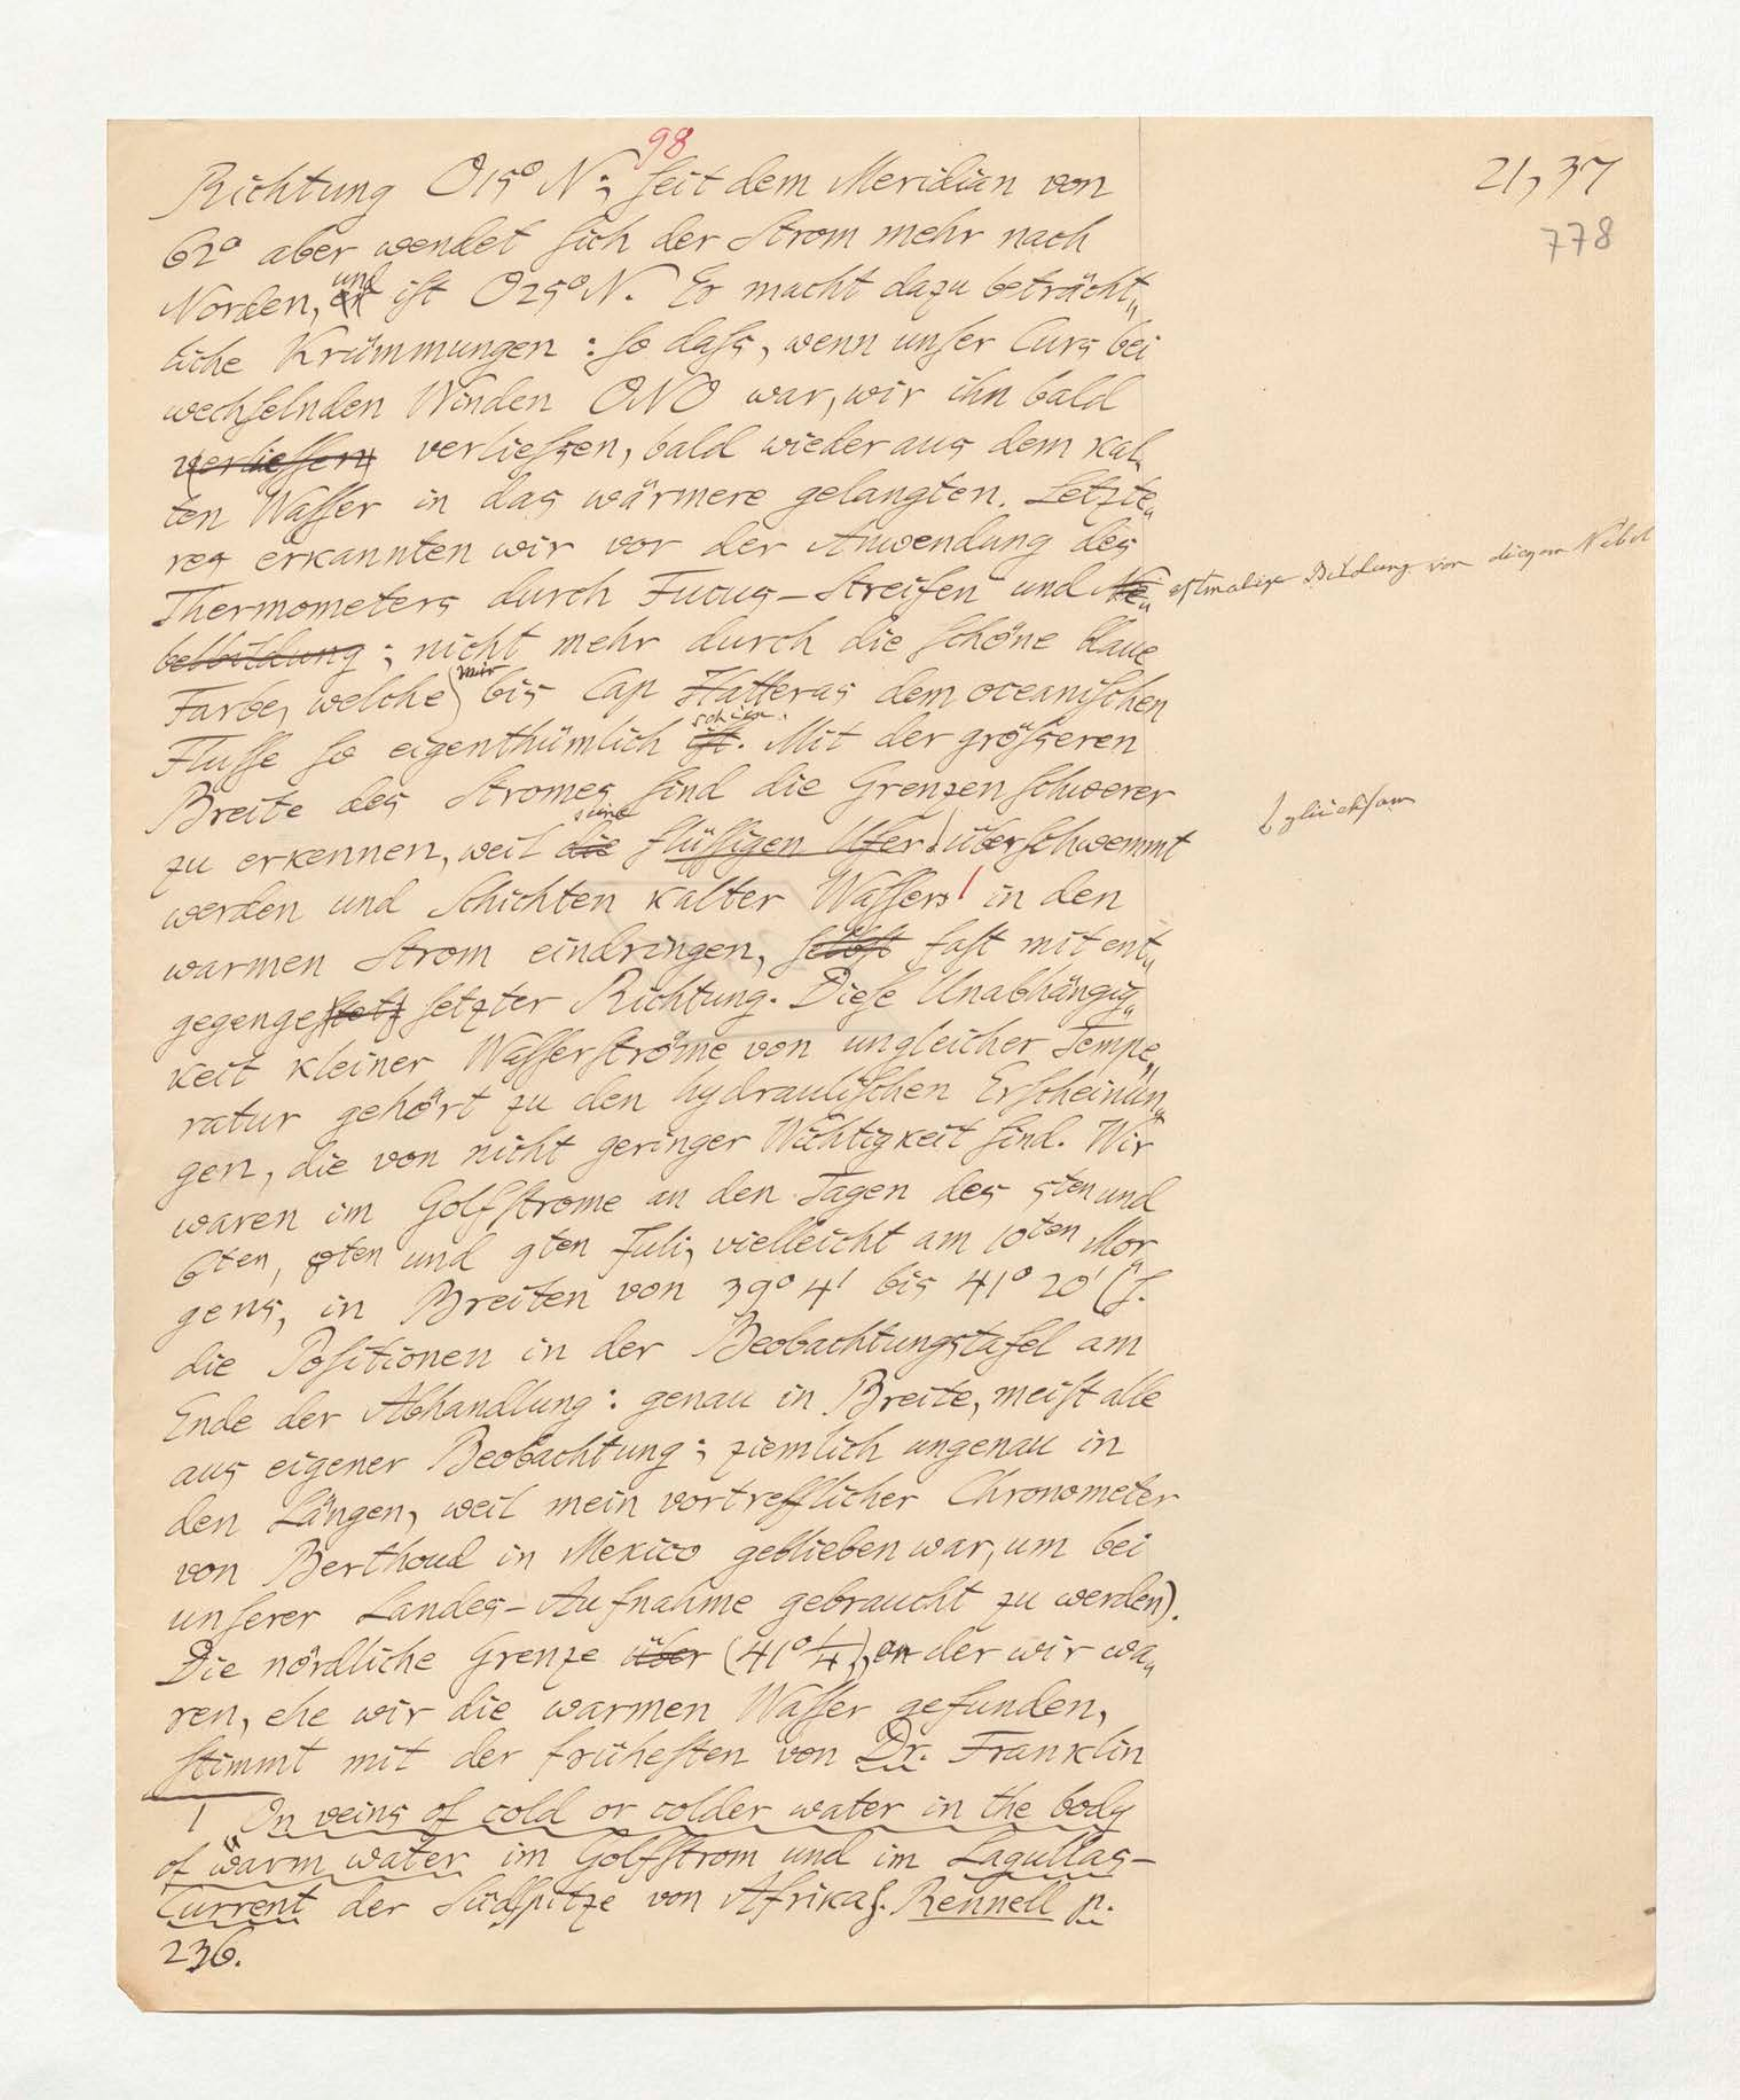 98
21,37
778
Richtung O15° N; seit dem Meridian von
62° aber wendet sich der Strom mehr nach
Norden, und ist O25° N. Er macht dazu beträcht„
liche Krümmungen: so dass, wenn unser Curs bei
wechselnden Winden ONO war, wir ihn bald
verliessen verliessen, bald wieder aus dem kal„
ten Wasser in das wärmere gelangten. Letzte„
res erkannten wir vor der Anwendung des
Thermometers durch Fucus-Streifen und Ne„
estmalige Bildung von Nebel
belbildung; nicht mehr durch die schöne blaue
Farbe, welche mir bis Cap Hatteras dem oceanischen
Flusse so eigenthümlich ist schien. Mit der grösseren
Breite des Stromes sind die Grenzen schwerer
zu erkennen, weil die seine flüssigen Ufer überschwemmt
gleichsam
werden und Schichten kalter Wasser 1 in den
warmen Strom eindringen, selbst fast mit ent„
gegenge setzter Richtung. Diese Unabhängig„
keit kleiner Wasserströme von ungleicher Tempe„
ratur gehört zu den hydraulischen Erscheinun„
gen, die von nicht geringer Wichtigkeit sind. Wir
waren im Golfstrome an den Tagen des 5ten und
6ten, 8ten und 9ten Juli, vielleicht am 10ten Mor„
gens, in Breiten von 39° 4' bis 41° 20' (s.
die Positionen in der Beobachtungstafel am
Ende der Abhandlung: genau in Breite, meist alle
aus eigener Beobachtung; ziemlich ungenau in
den Längen, weil mein vortrefflicher Chronometer
von Berthoud in Mexico geblieben war, um bei
unserer Landes-Aufnahme gebraucht zu werden).
Die nördliche Grenze über (41° 1/4), an der wir wa„
ren, ehe wir die warmen Wasser gefunden,
stimmt mit der frühesten von Dr. Franklin
1 On veins of cold or colder water in the body
of warm water im Golfstrom und im Lagullas-
Current der Südspitze von Afrika s. Rennell p.
236.